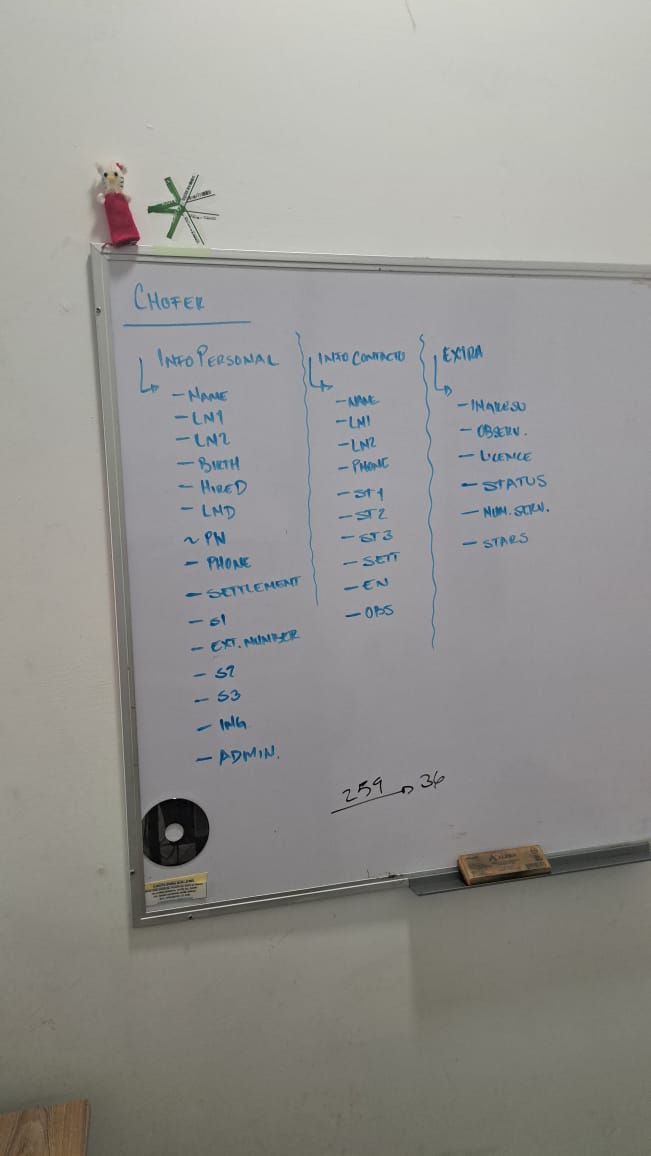 CHOFER
INFO PERSONAL
- NAME
- LN1
- LN2
- BIRTH
- HIRED
- LMD
~ PW
- PHONE
- SETTLEMENT
- S1
- EXT. NUMBER
- S2
- S3
- ING
- ADMIN.
INFO CONTACTO
- NAME
- LN1
- LN2
- PHONE
- ST1
- ST2
- ST3
- SETT
- EN
- OBS
EXTRA
- INGRESO
- OBSERV.
- LICENCE
- STATUS
- NUM. SERV.
- STARS
259 → 36